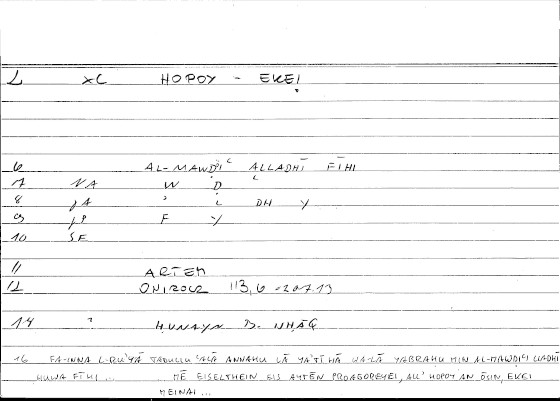 L xC HOPOY - EKEI
6 AL-MAWḌIʿ ALLADHĪ FĪHI
7 NA W Ḍ ʿ
8 ʾ L DH Y
9 F Y
10 SE
11 ARTEM
12 ONIROCR 113,6 - 207.13
14 HUNAYN B. ISHĀQ
16 FA-INNA L-RUʾYĀ TADULLU ʿALĀ ANNAHU LĀ YAʾTĪHĀ WA-LĀ YABRAHU MIN AL-MAWḌIʿI LLADHĪ
HUWA FĪHI ... ... MĒ EISELTHEIN EIS AYTĒN PROAGOREYEI, ALL' HOPOY AN ŌSIN, EKEI
MEINAI ...